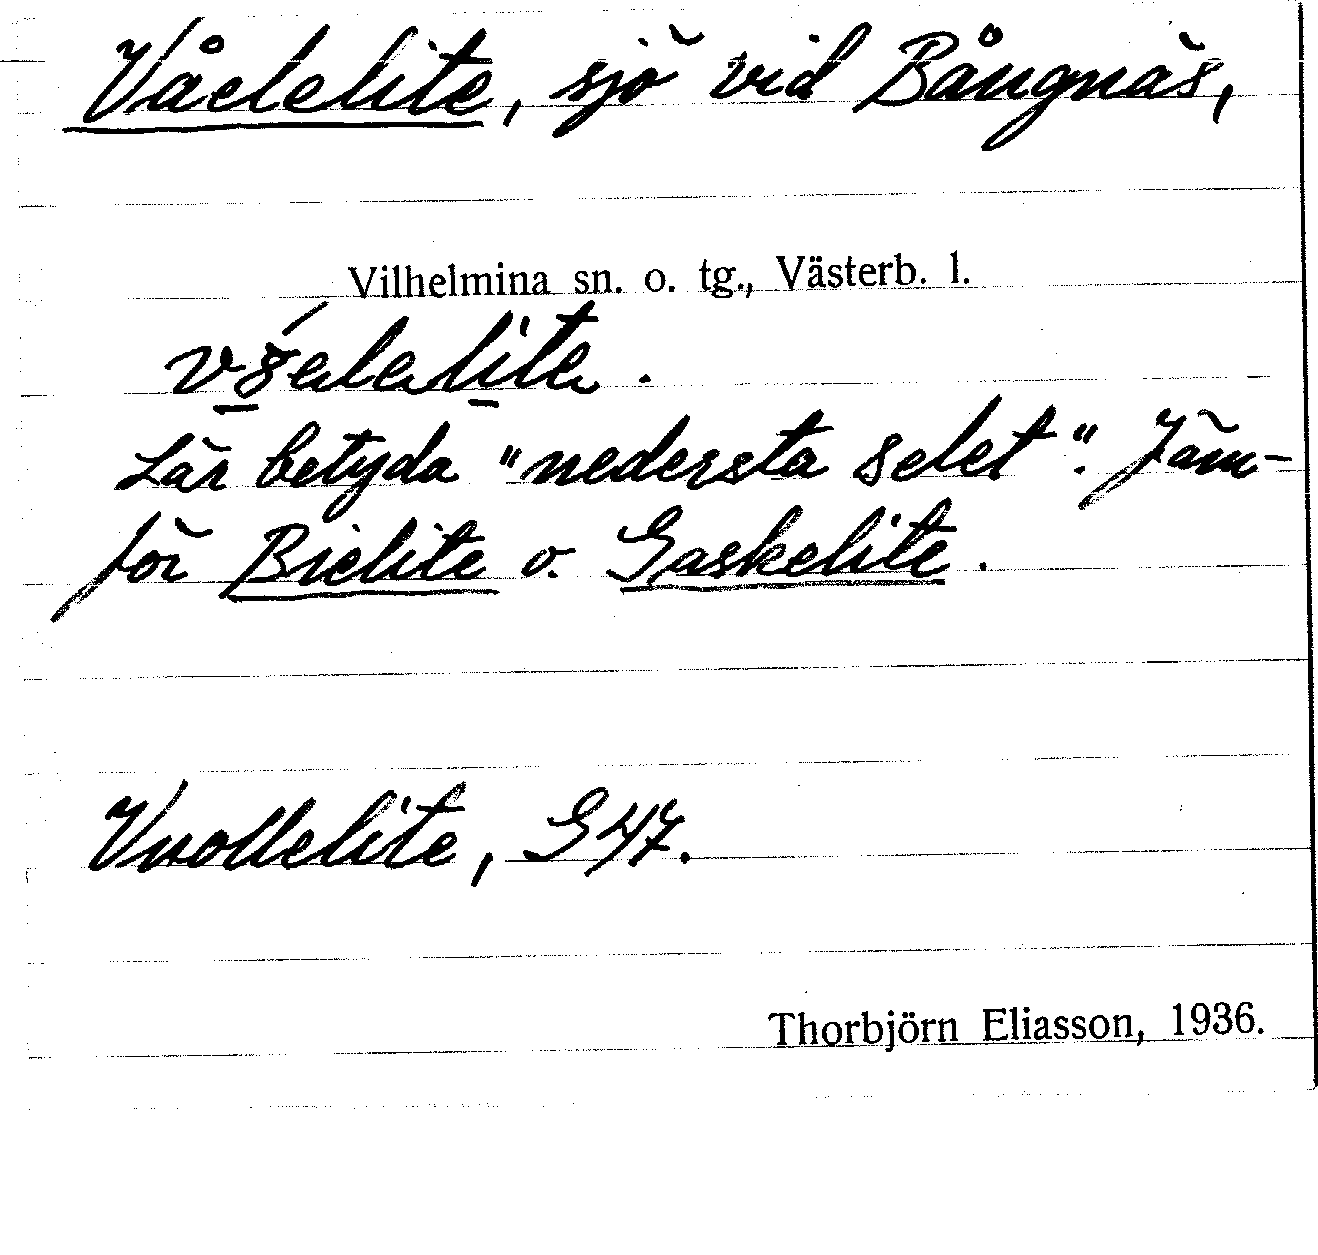 Våelelite, sjö vid Bångnäs,
Vilhelmina sn. o. tg., Västerb. l.
Lär betyda "nedersta selet". Jäm-
för Bielite o. Gaskelite.
Vuollelite, G 47.
Thorbjörn Eliasson, 1936.